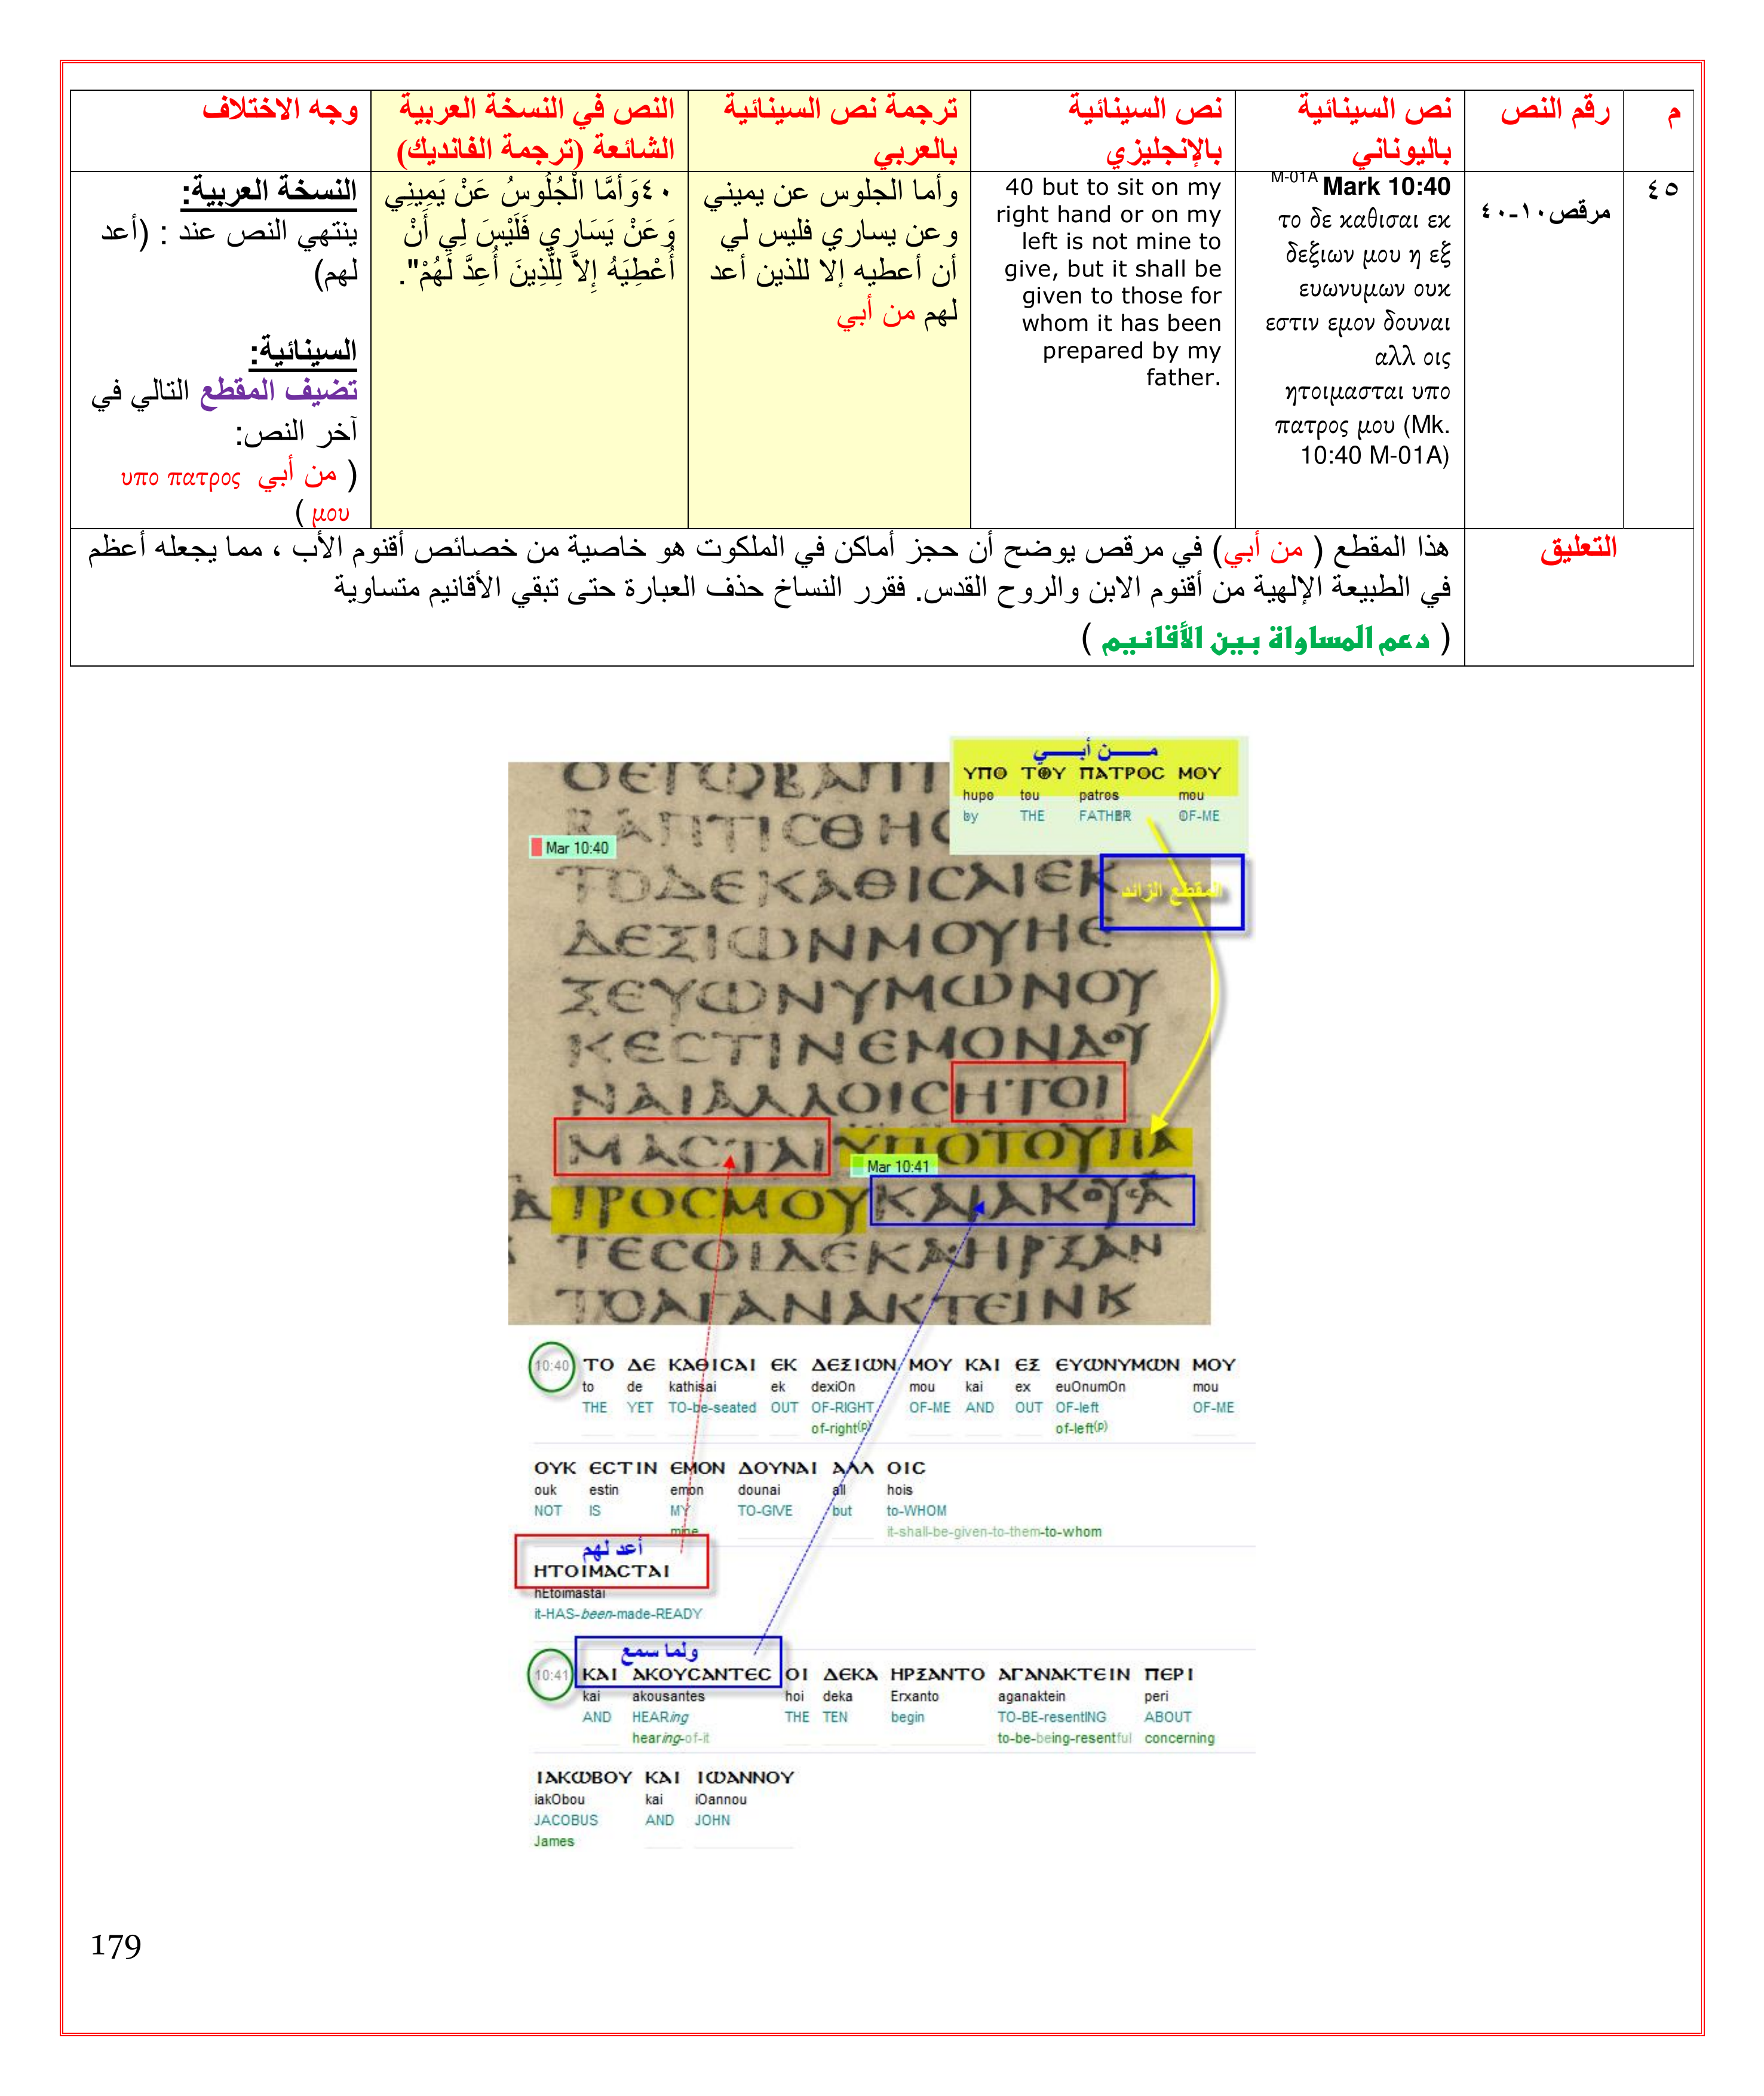 م
رقم النص
نص السينائية
باليوناني
نص السينائية
بالإنجليزي
ترجمة نص السينائية
بالعربي
النص في النسخة العربية
الشائعة (ترجمة الفانديك)
وجه الاختلاف
٤٥
مرقص١٠-٤٠
M-01A Mark 10:40
το δε καθισαι εκ
δεξιων μου η εξ
ευωνυμων ουκ
εστιν εμον δουναι
αλλ οις
ητοιμασται υπο
πατρος μου (Mk.
10:40 M-01A)
40 but to sit on my
right hand or on my
left is not mine to
give, but it shall be
given to those for
whom it has been
prepared by my
father.
وأما الجلوس عن يميني
وعن يساري فليس لي
أن أعطيه إلا للذين أعد
لهم من أبي
٤٠وَأَمَّا الْجُلُوسُ عَنْ يَمِينِي
وَعَنْ يَسَارِي فَلَيْسَ لِي أَنْ
أُعْطِيَهُ إِلاَّ لِلَّذِينَ أُعِدَّ لَهُمْ".
النسخة العربية:
ينتهي النص عند : (أعد
لهم)
السينائية:
تضيف المقطع التالي في
آخر النص:
( من أبي υπο πατρος
μου )
التعليق
هذا المقطع ( من أبي) في مرقص يوضح أن حجز أماكن في الملكوت هو خاصية من خصائص أقنوم الأب ، مما يجعله أعظم
في الطبيعة الإلهية من أقنوم الابن والروح القدس. فقرر النساخ حذف العبارة حتى تبقي الأقانيم متساوية
( دعم المساواة بين الأقانيم )
مــــن أبــــي
ΥΠΟ ΤΟΥ ΠΑΤΡΟC ΜΟΥ
hupo tou patros mou
by THE FATHER OF-ME
ΟΕΓΩΒΑΠΤΙ
ΒΑΠΤΙCΘΗC
Mar 10:40
ΤΟΔΕΚΑΘΙCΑΙΕΚ
المقطع الزائد
ΔΕΞΙΩΝΜΟΥΗΕ
ΞΕΥΩΝΥΜΩΝΟΥ
ΚΕCΤΙΝΕΜΟΝΔΟΥ
ΝΑΙΑΛΛΟΙCΗΤΟΙ
ΜΑCΤΑΙΥΠΟΤΟΥΠΑ
Mar 10:41
ΤΡΟCΜΟΥΚΑΙΑΚΟΥCΑ
ΤΕCΟΙΔΕΚΑΗΡΞΑΝ
ΤΟΑΓΑΝΑΚΤΕΙΝΚ
10:40 ΤΟ ΔΕ ΚΑΘΙCΑΙ ΕΚ ΔΕΞΙΩΝ ΜΟΥ ΚΑΙ ΕΞ ΕΥΩΝΥΜΩΝ ΜΟΥ
to de kathisai ek dexiOn mou kai ex euOnumOn mou
THE YET TO-be-seated OUT OF-RIGHT OF-ME AND OUT OF-left OF-ME
of-right(p) of-left(p)
ΟΥΚ ΕCΤΙΝ ΕΜΟΝ ΔΟΥΝΑΙ ΑΛΛ ΟΙC
ouk estin emon dounai all hois
NOT IS MY TO-GIVE but to-WHOM
mine it-shall-be-given-to-them-to-whom
أعد لهم
ΗΤΟΙΜΑCΤΑΙ
hEtoimastai
it-HAS-been-made-READY
ولما سمع
10:41 ΚΑΙ ΑΚΟΥCΑΝΤΕC ΟΙ ΔΕΚΑ ΗΡΞΑΝΤΟ ΑΓΑΝΑΚΤΕΙΝ ΠΕΡΙ
kai akousantes hoi deka Erxanto aganaktein peri
AND HEARing THE TEN begin TO-BE-resentING ABOUT
hearing-of-it to-be-being-resentful concerning
ΙΑΚΩΒΟΥ ΚΑΙ ΙΩΑΝΝΟΥ
iakObou kai iOannou
JACOBUS AND JOHN
James
179